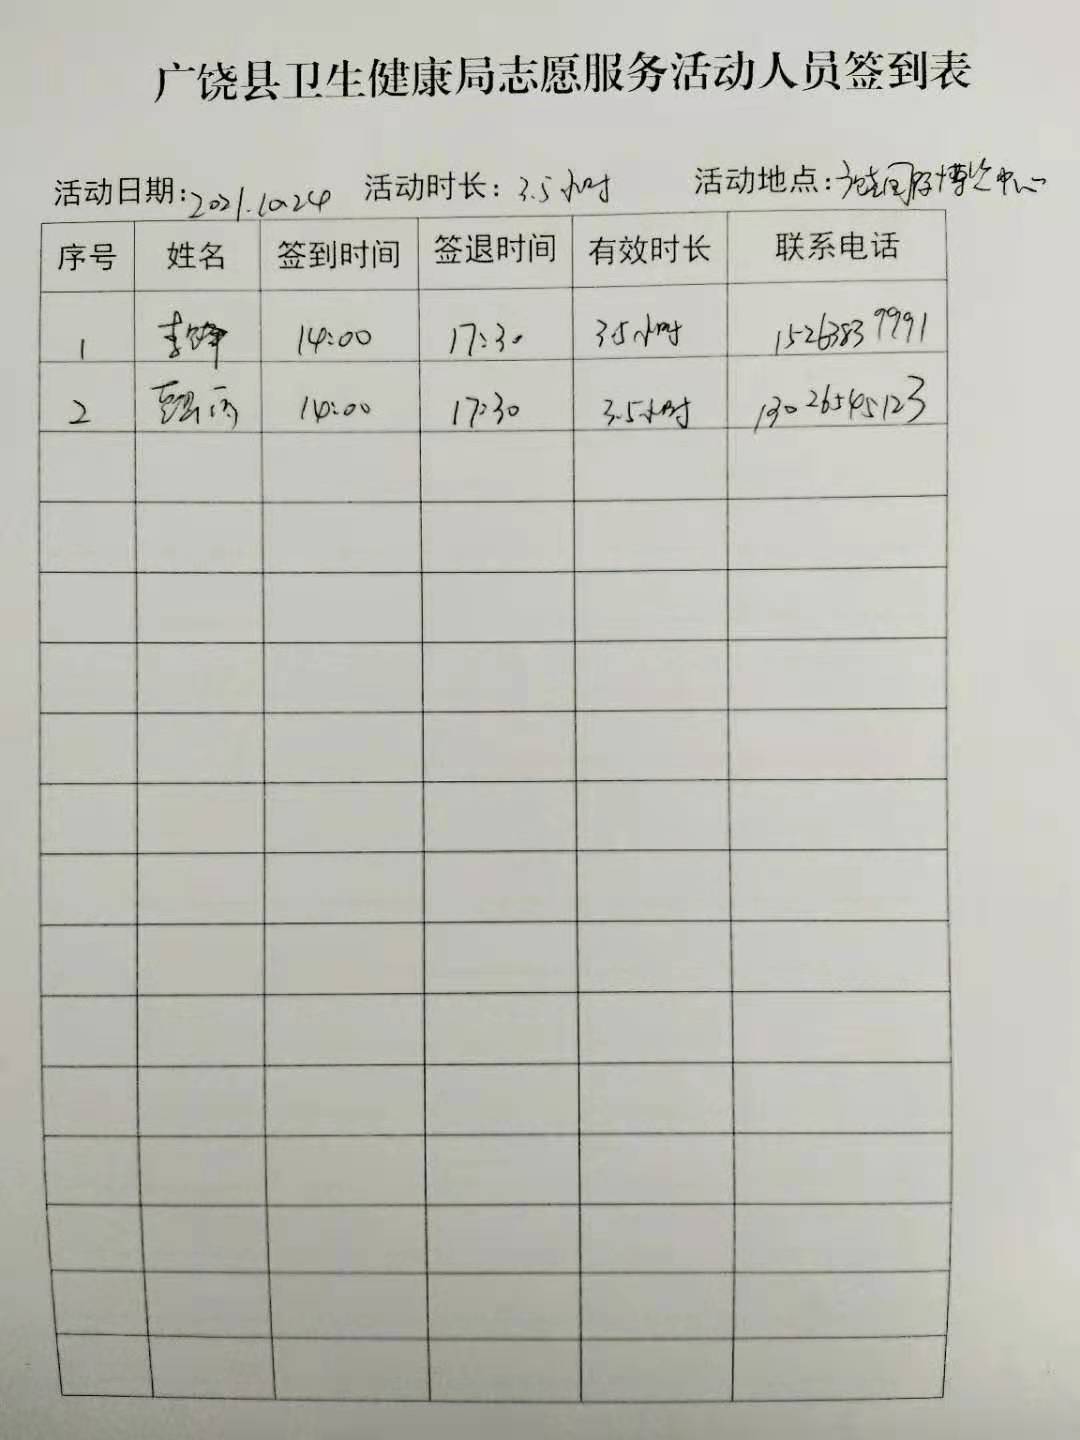 广饶县卫生健康局志愿服务活动人员签到表
活动日期:2021.10.24 活动时长:3.5小时 活动地点:广饶国际博览中心
序号 姓名 签到时间 签退时间 有效时长 联系电话
1 李峰 14:00 17:30 3.5小时 15263839991
2 14:00 17:30 3.5小时 13026545123